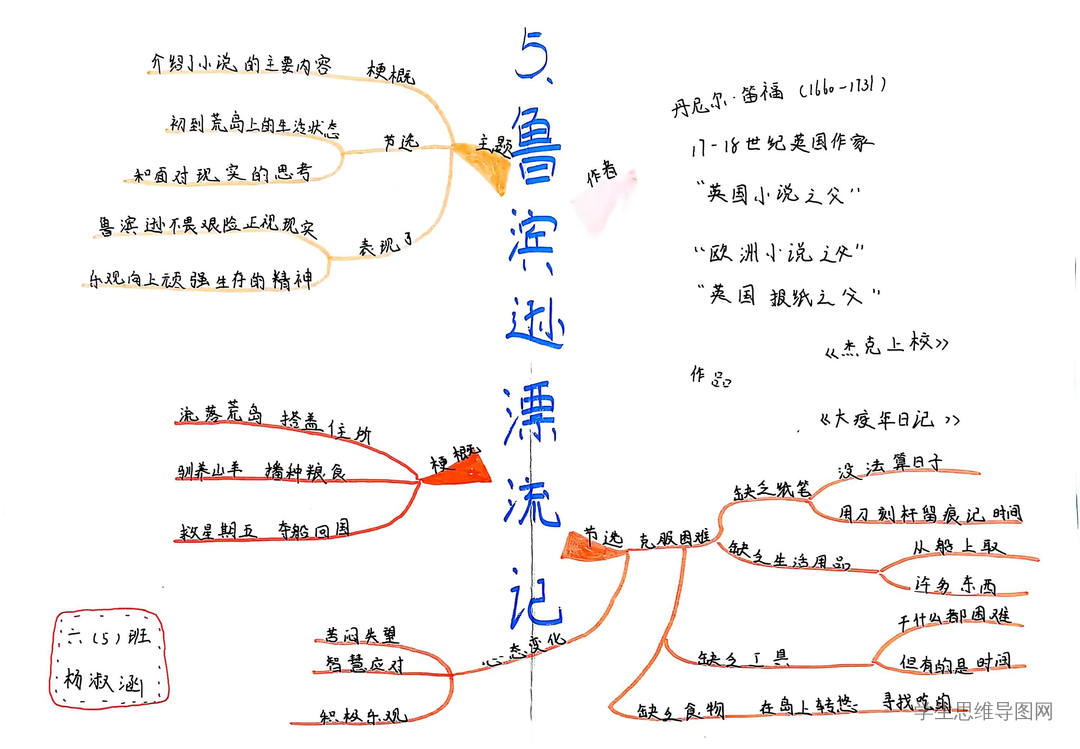 5、鲁滨逊漂流记
主题
梗概
介绍了小说的主要内容
节选
初到荒岛上的生活状态
和面对现实的思考
表现了
鲁滨逊不畏艰险正视现实
乐观向上顽强生存的精神
作者
丹尼尔·笛福 (1660-1731)
17-18世纪英国作家
"英国小说之父"
"欧洲小说之父"
"英国报纸之父"
作品
《杰克上校》
《大疫年日记》
梗概
流落荒岛 搭盖住所
驯养山羊 播种粮食
救星期五 夺船回国
节选
克服困难
缺乏纸笔
没法算日子
用刀刻杆留痕记时间
缺乏生活用品
从船上取
许多东西
缺乏工具
干什么都困难
但有的是时间
缺乏食物 在岛上转悠 寻找吃的
心态变化
苦闷失望
智慧应对
积极乐观
六(5)班
杨淑涵
学生思维导图网